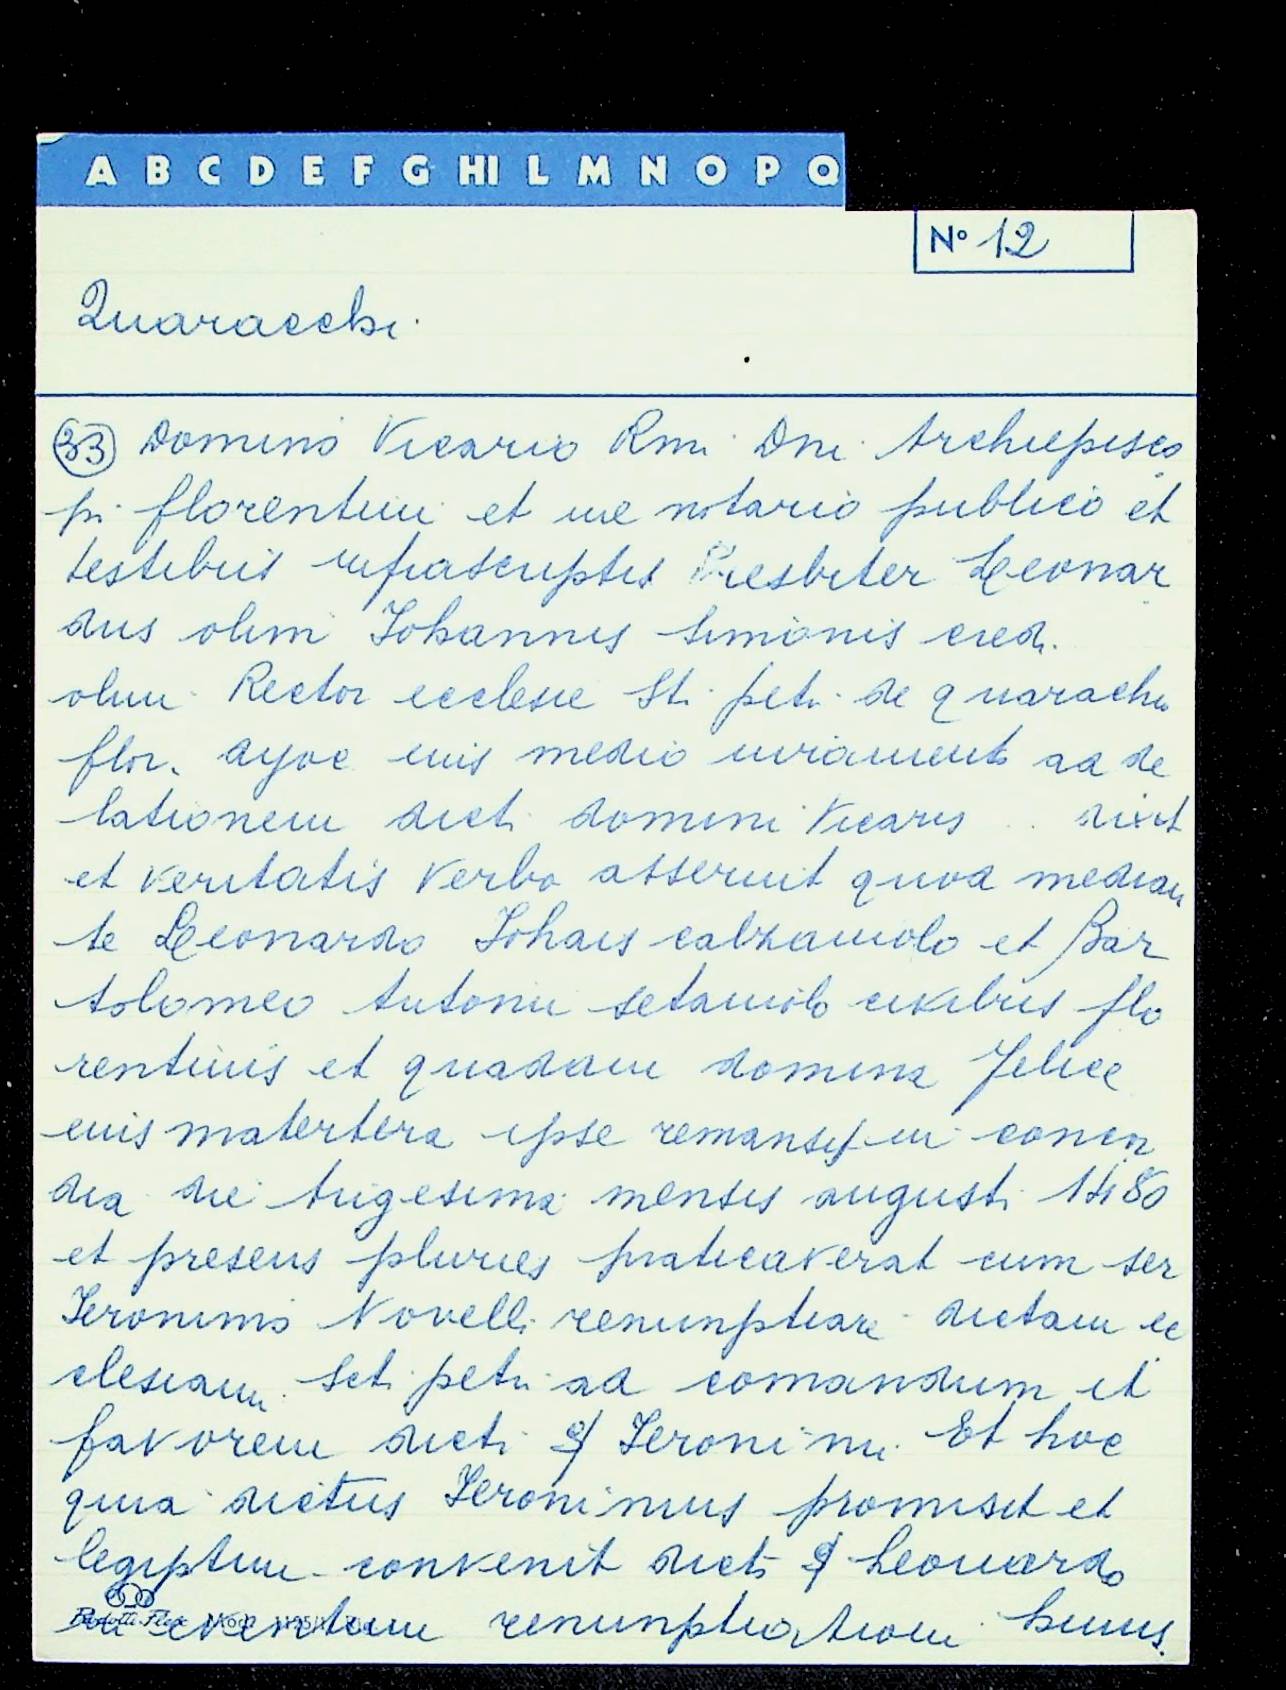 A B C D E F G HI L M N O P Q
N° 12
Quaracchi
33 Domino Vicario Rmi Dni Archiepisco
pi florentini et me notario publico et
testibus infrascriptis Presbiter Leonar
dus olim Iohannis Simonis
olim Rector ecclesie Sti petri de quarachi
flor. eius medio iuramento ad de
lationem dicti domini Vicarii .. dixit
et veritatis verbo asseruit quod median
te Leonardo Iohais calzaiuolo et Bar
tolomeo Antonii setaiuolo civibus flo
rentinis et quadam domina Felice
eius matertera ipse remansit in concor
dia die trigesima mensis augusti 1480
et presens pluries praticaverat cum ser
Ieronimo Novelli renunptiare dictam ec
clesiam Scti petri ad comandum et
favorem dicti Ieronimi. Et hoc
quia dictus Ieronimus promisit et
convenit dicto Leonardo
in eventum renunptiationem huius